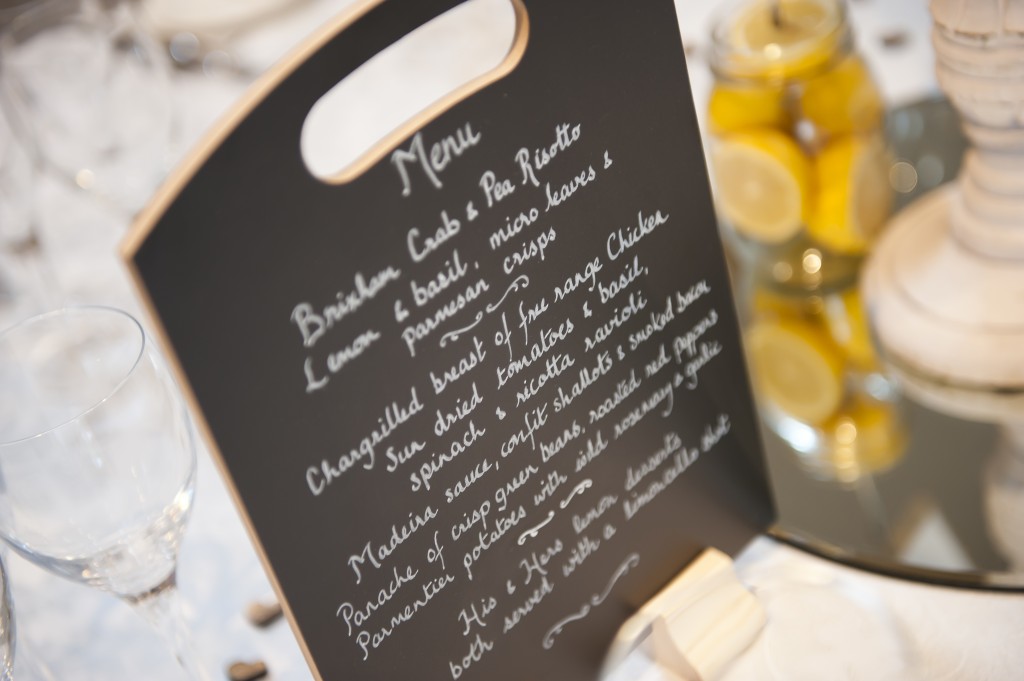 Menu
Brixham Crab & Pea Risotto
Lemon & basil, micro leaves &
parmesan crisps
Chargrilled breast of free range Chicken
Sun dried tomatoes & basil,
spinach & ricotta ravioli
Madeira sauce, confit shallots & smoked bacon
Panache of crisp green beans, roasted red peppers
Parmentier potatoes with wild rosemary & garlic
His & Hers lemon desserts
both served with a limoncello shot